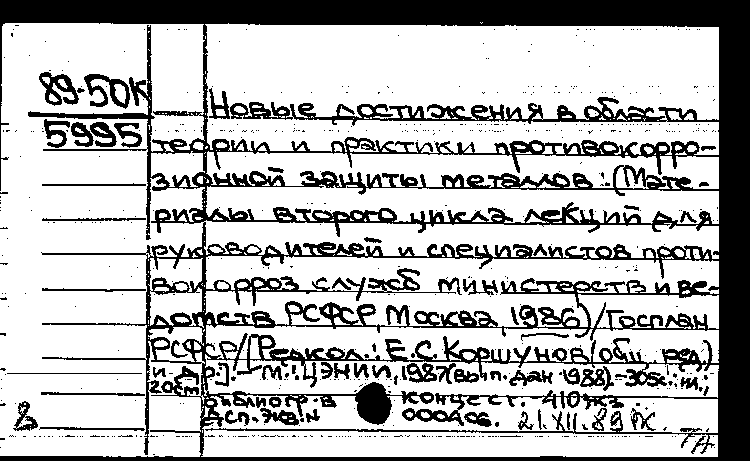 89-50К
5995
Новые достижения в области
теории и практики противокорро-
зионной защиты металлов: (Мате-
риалы второго цикла лекций для
руководителей и специалистов проти-
вокорроз. служб министерств и ве-
домств РСФСР, Москва, 1986) / Госплан
РСФСР / [Редкол.: Е.С. Коршунов (общ. ред.)
и др.]. - М.: ЦЭНИИ, 1987 (вып. дан. 1988). - 305с.: ил.;
20см
Библиогр. в конце ст. - 410 экз.
ДСП. Экз. N 000406. 21.XII.89